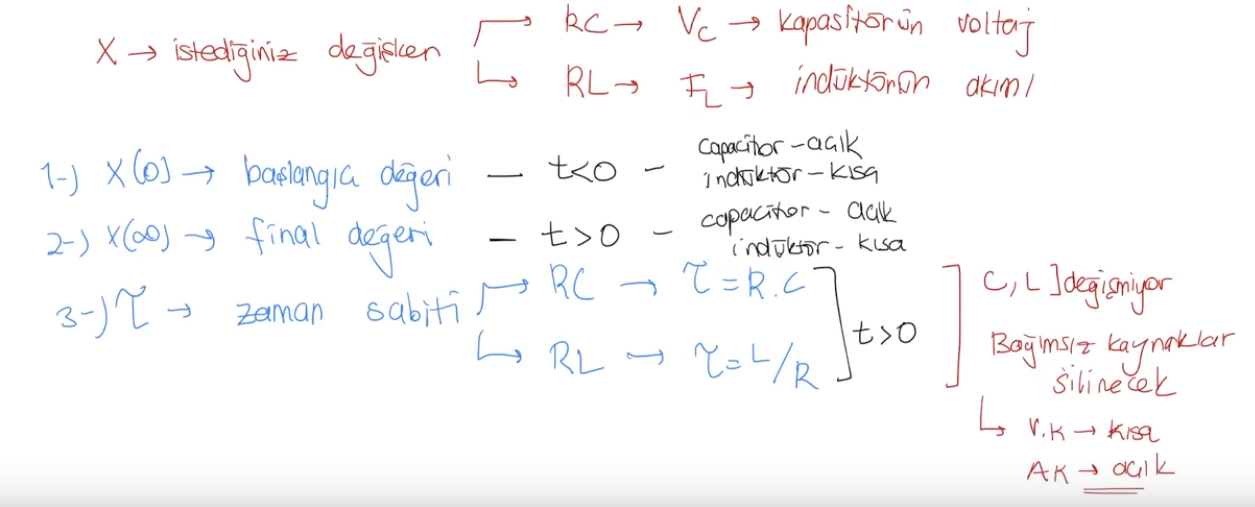 X → istediğiniz değişken
RC → Vc → kapasitörün voltaj
RL → IL → indüktörün akımı
1-) X(0) → başlangıç değeri – t<0 – capacitor - açık
indüktör - kısa
2-) X(∞) → final değeri – t>0 – capacitor - açık
indüktör - kısa
3-) τ → zaman sabiti
RC → τ = R.C
RL → τ = L/R
t>0
C, L ] değişmiyor
Bağımsız kaynaklar
silinecek
↳ V.K → kısa
AK → açık